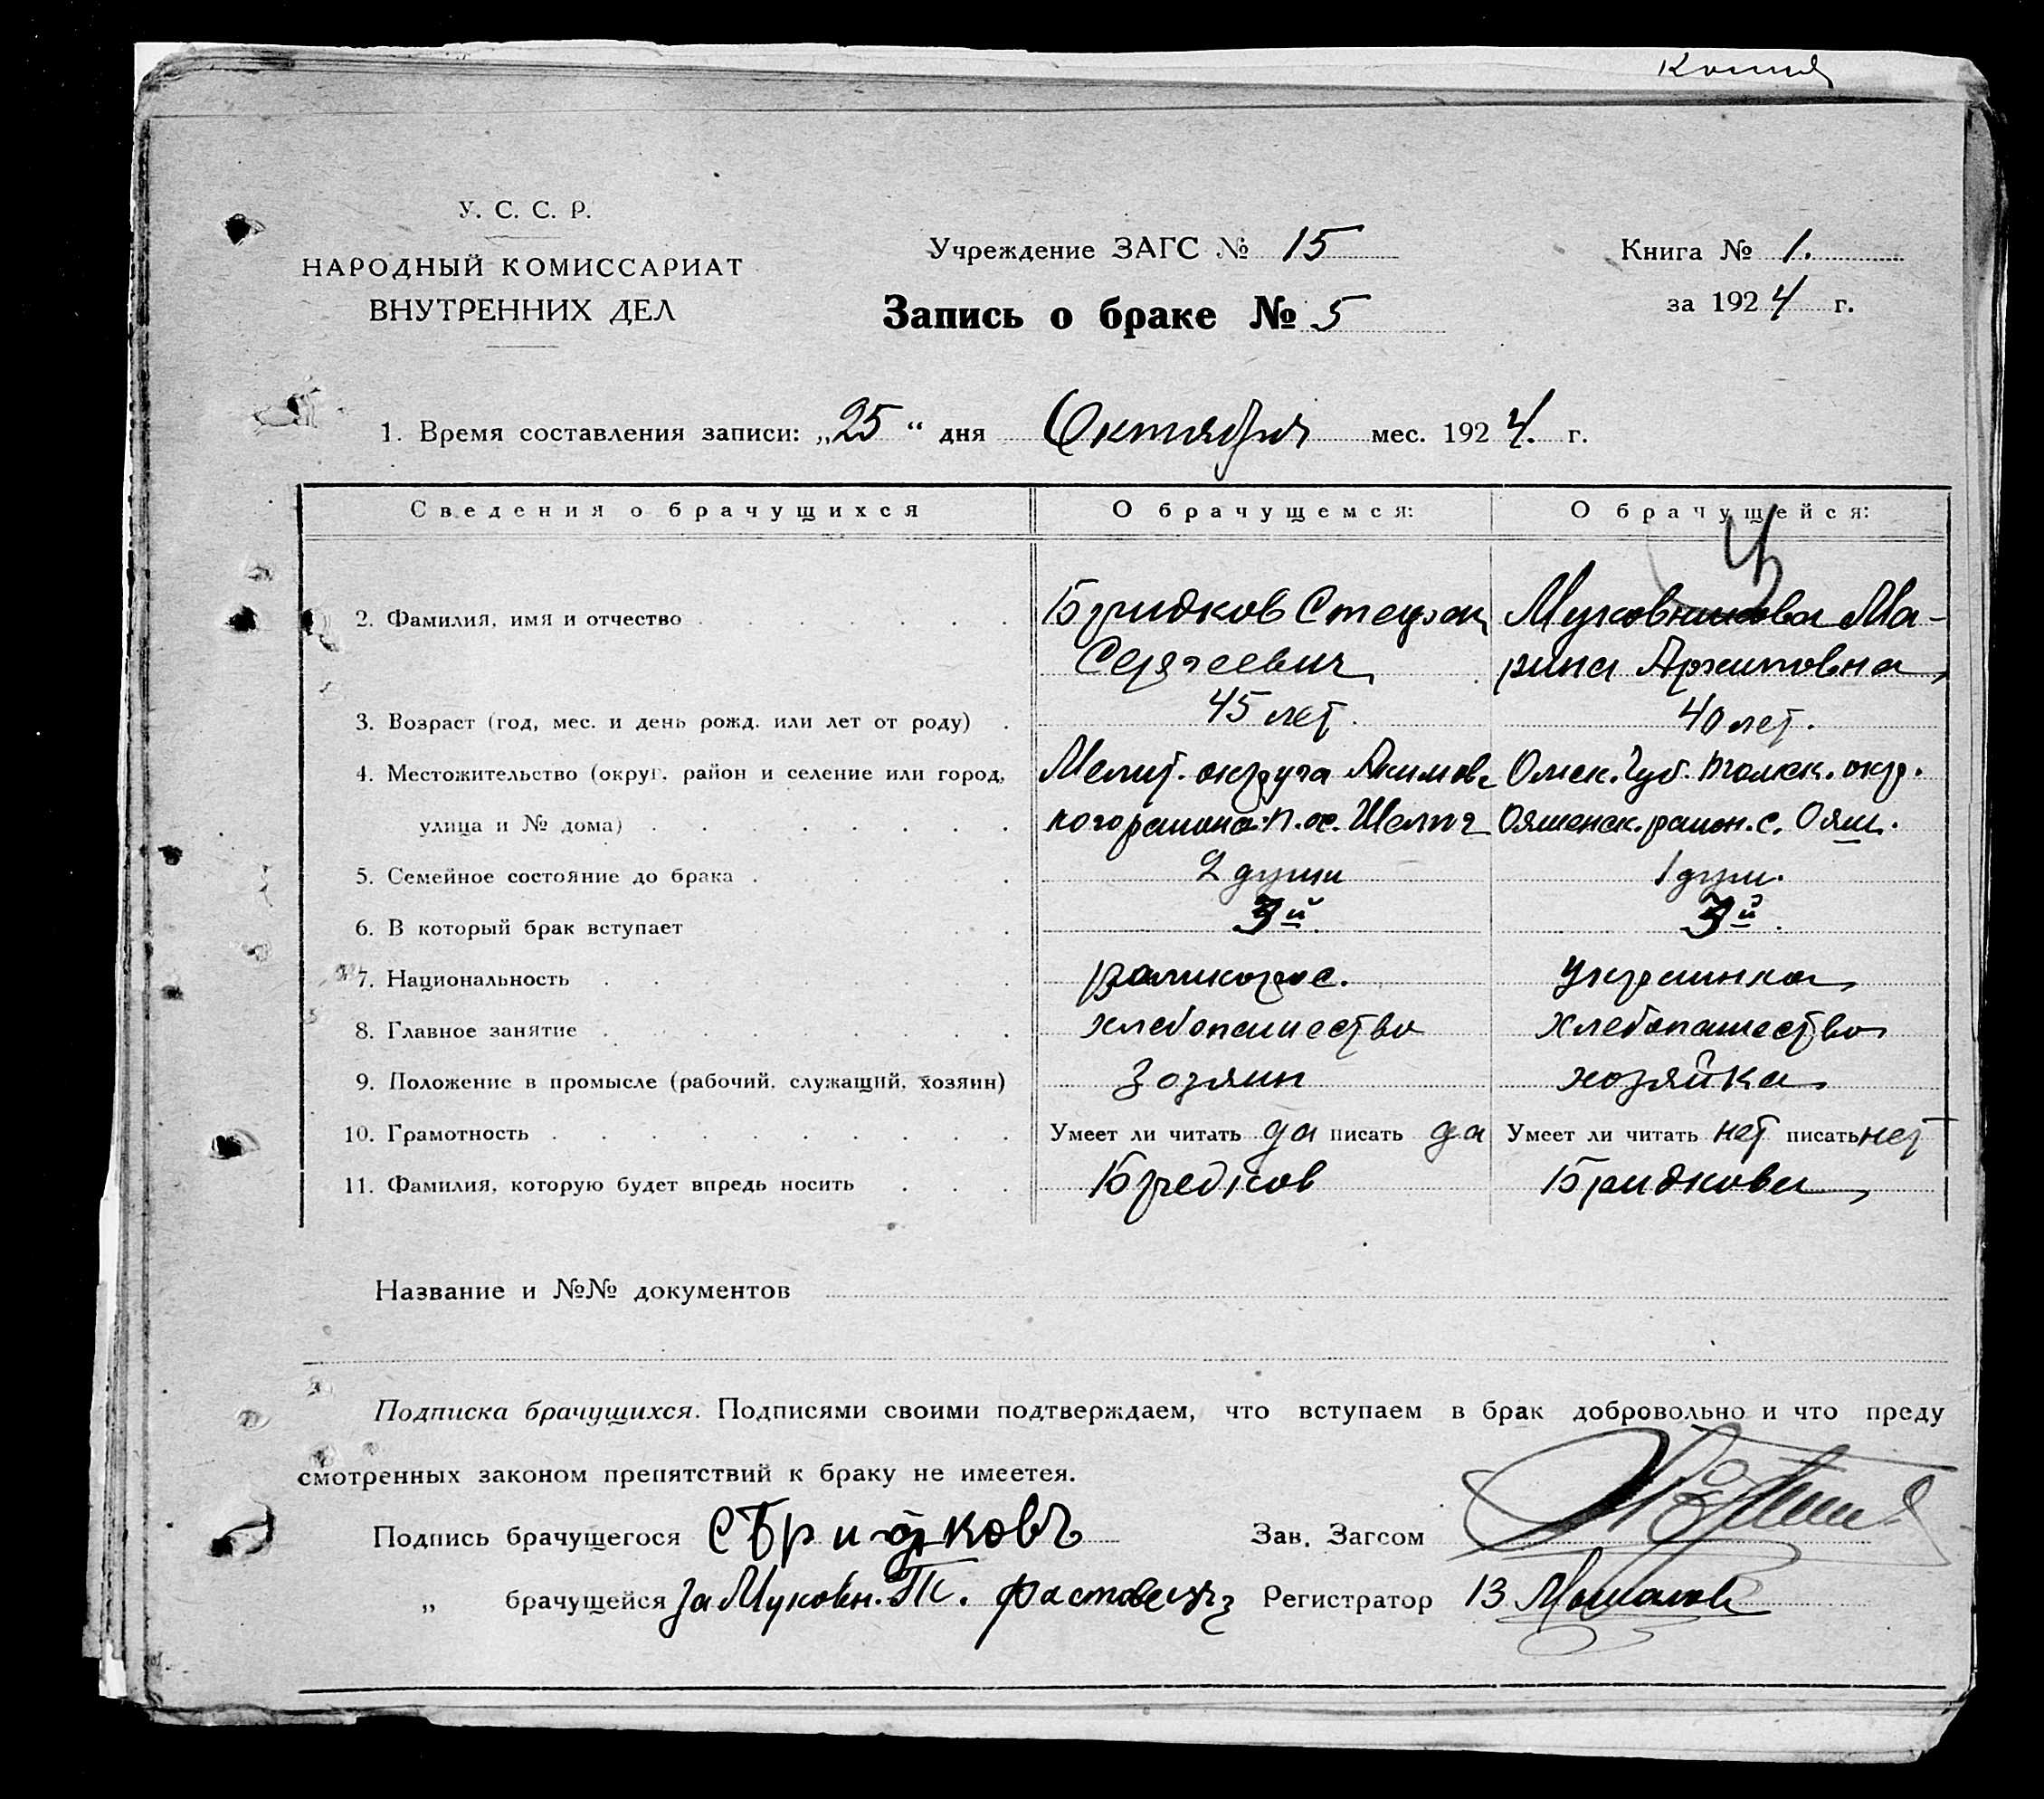 Копия
У. С. С. Р.
НАРОДНЫЙ КОМИССАРИАТ
ВНУТРЕННИХ ДЕЛ
Учреждение ЗАГС № 15
Запись о браке № 5
Книга № 1.
за 1924 г.
1. Время составления записи: „25“ дня Октября мес. 1924. г.
Сведения о брачущихся О брачущемся: О брачущейся:
2. Фамилия, имя и отчество Бридков Стефан Муковникова Ма-
Сергеевич рина Архиповна
3. Возраст (год, мес. и день рожд. или лет от роду) 45 лет. 40 лет.
4. Местожительство (округ, район и селение или город, Мелит. округа Акимовс Омск. Губ. Томск. окр.
улица и № дома) кого района п. ох. Ояшенск. район. с. Ояш.
5. Семейное состояние до брака 2 души 1 душ.
6. В который брак вступает 3й. 3й.
7. Национальность великорос. украинка
8. Главное занятие хлебопашество хлебопашество
9. Положение в промысле (рабочий, служащий, хозяин) хозяин хозяйка
10. Грамотность Умеет ли читать да писать да Умеет ли читать нет писать нет
11. Фамилия, которую будет впредь носить Бридков Бридкова
Название и №№ документов
Подписка брачущихся. Подписями своими подтверждаем, что вступаем в брак добровольно и что преду
смотренных законом препятствий к браку не имеется.
Подпись брачущегося СБридковъ Зав. Загсом
„ брачущейся за Муковн. Регистратор